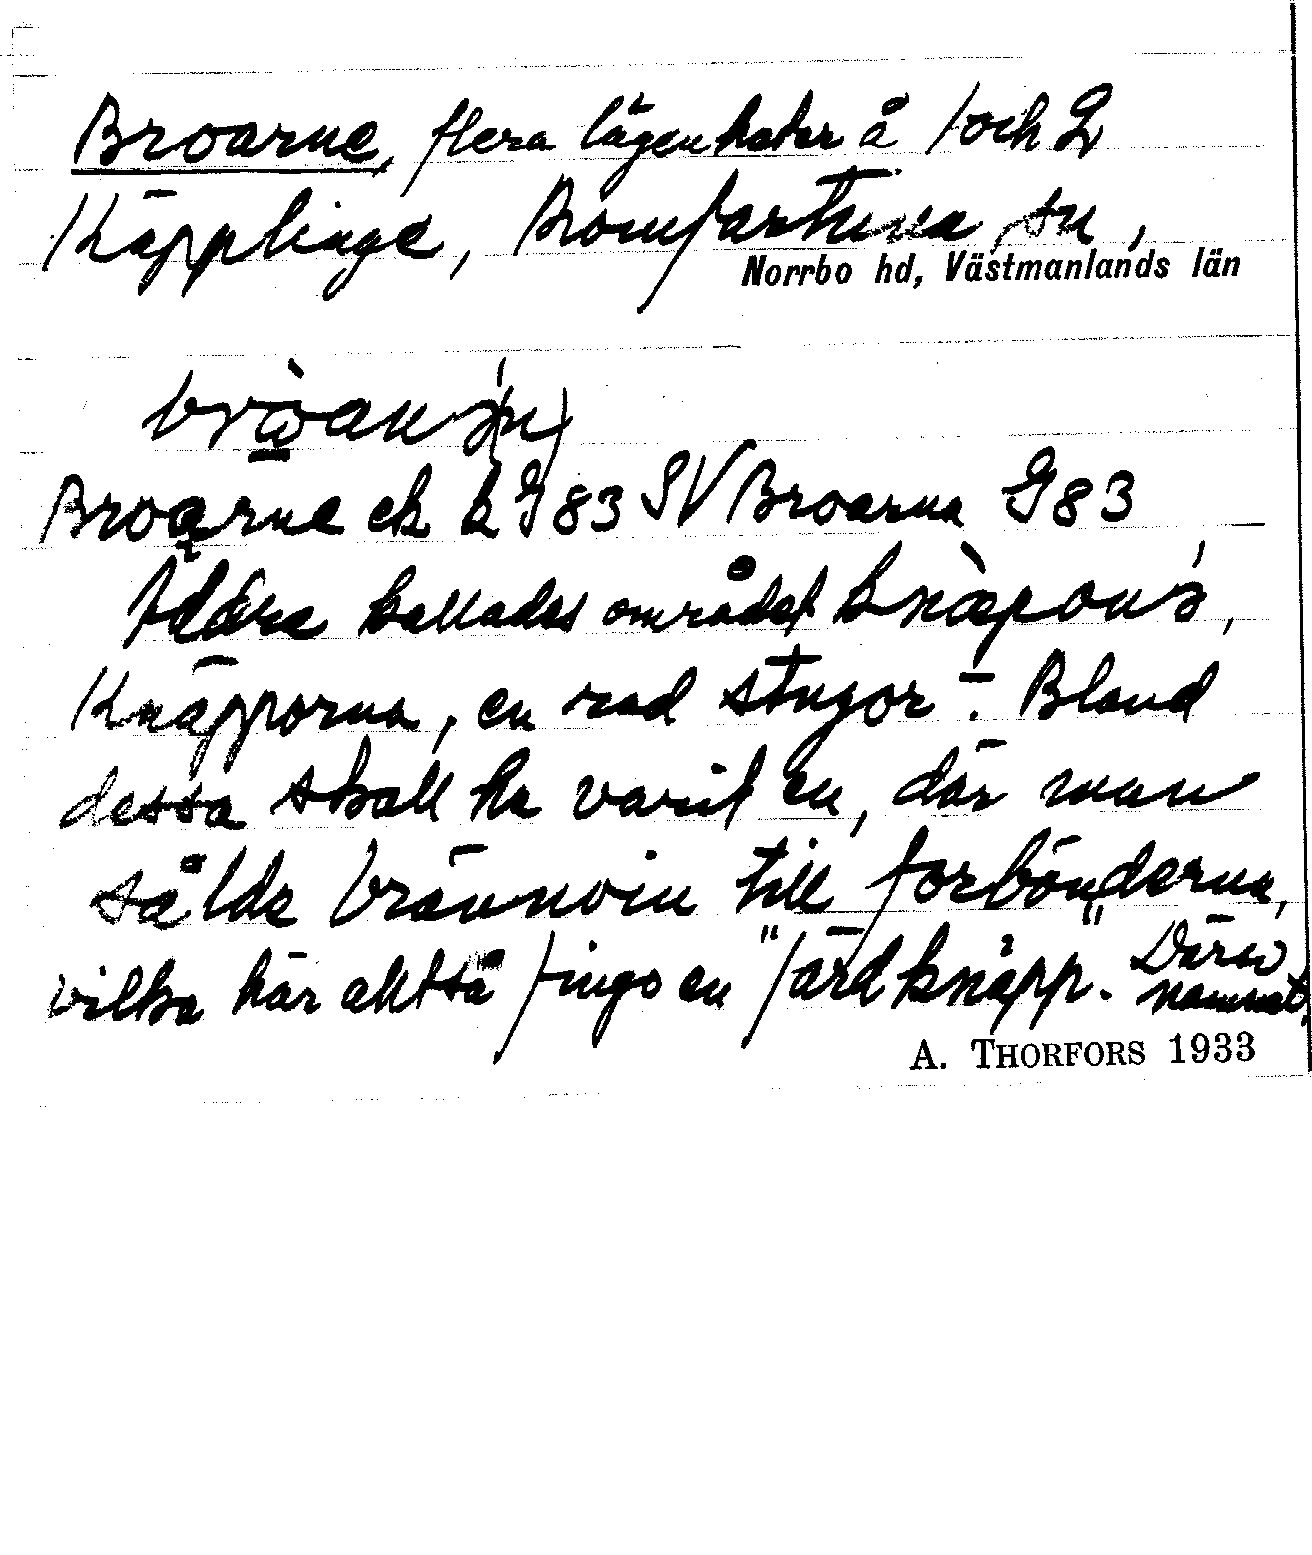 Broarne, flera lägenheter å 1 och 2
Käpplinge, Romfartuna sn,
Norrbo hd, Västmanlands län
Broarne ek k G83 SV Broarna G83
Äldre kallades området
Knäpporna, en rad stugor. Bland
dessa skall ha varit en, där man
sålde brännvin till forbönderna,
vilka här alltså fingo en "färdknäpp". Därav
namnet.
A. THORFORS 1933